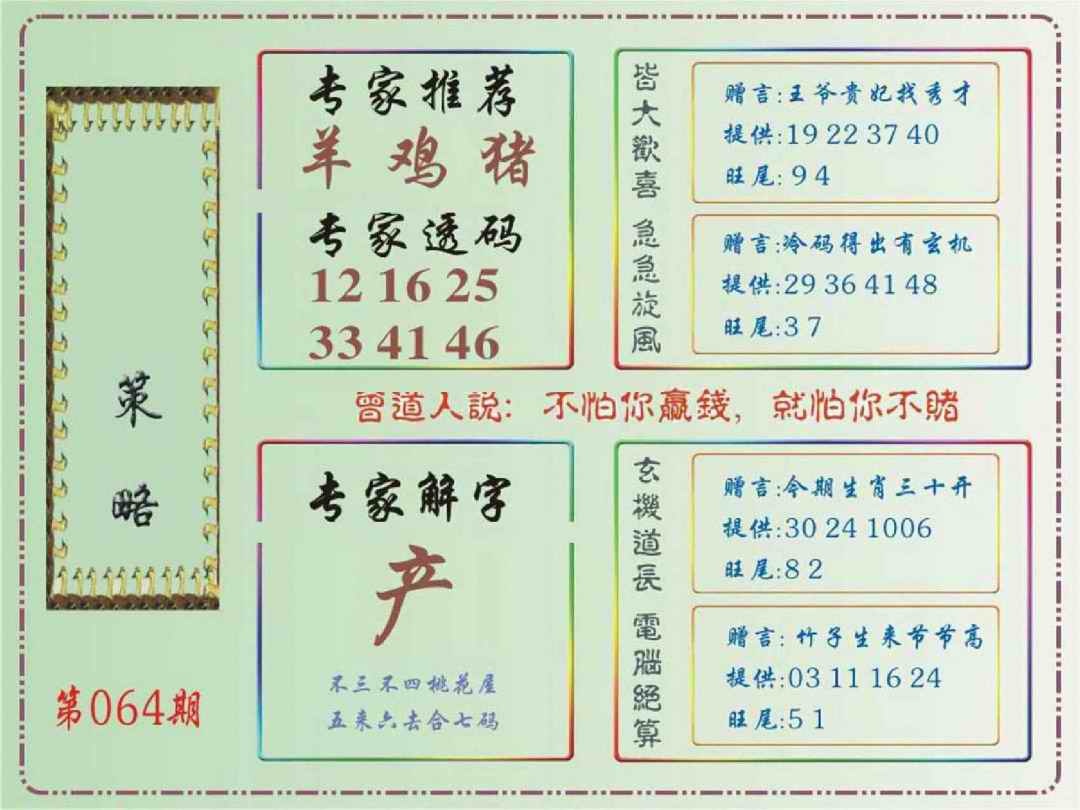 策
略
第064期
专家推荐
羊 鸡 猪
专家透码
12 16 25
33 41 46
皆大歡喜
赠言:王爷貴妃找秀才
提供:19 22 37 40
旺尾: 9 4
急急旋风
赠言:冷码得出有玄机
提供:29 36 41 48
旺尾:3 7
曾道人説: 不怕你贏錢, 就怕你不賭
专家解字
产
不三不四桃花屋
五来六去合七码
玄機道長
赠言:今期生肖三十开
提供:30 24 1006
旺尾:8 2
電腦絕算
赠言: 竹子生来节节高
提供:03 11 16 24
旺尾:5 1